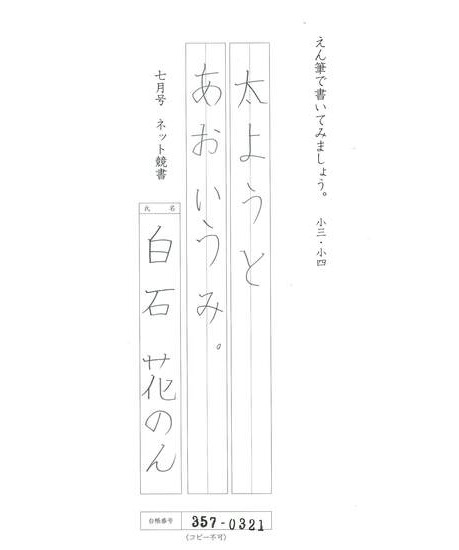 えん筆で書いてみましょう。 小三・小四
太ようと
あおいうみ。
七月号 ネット競書
氏名
白石 花のん
台帳番号 357-0321
(コピー不可)